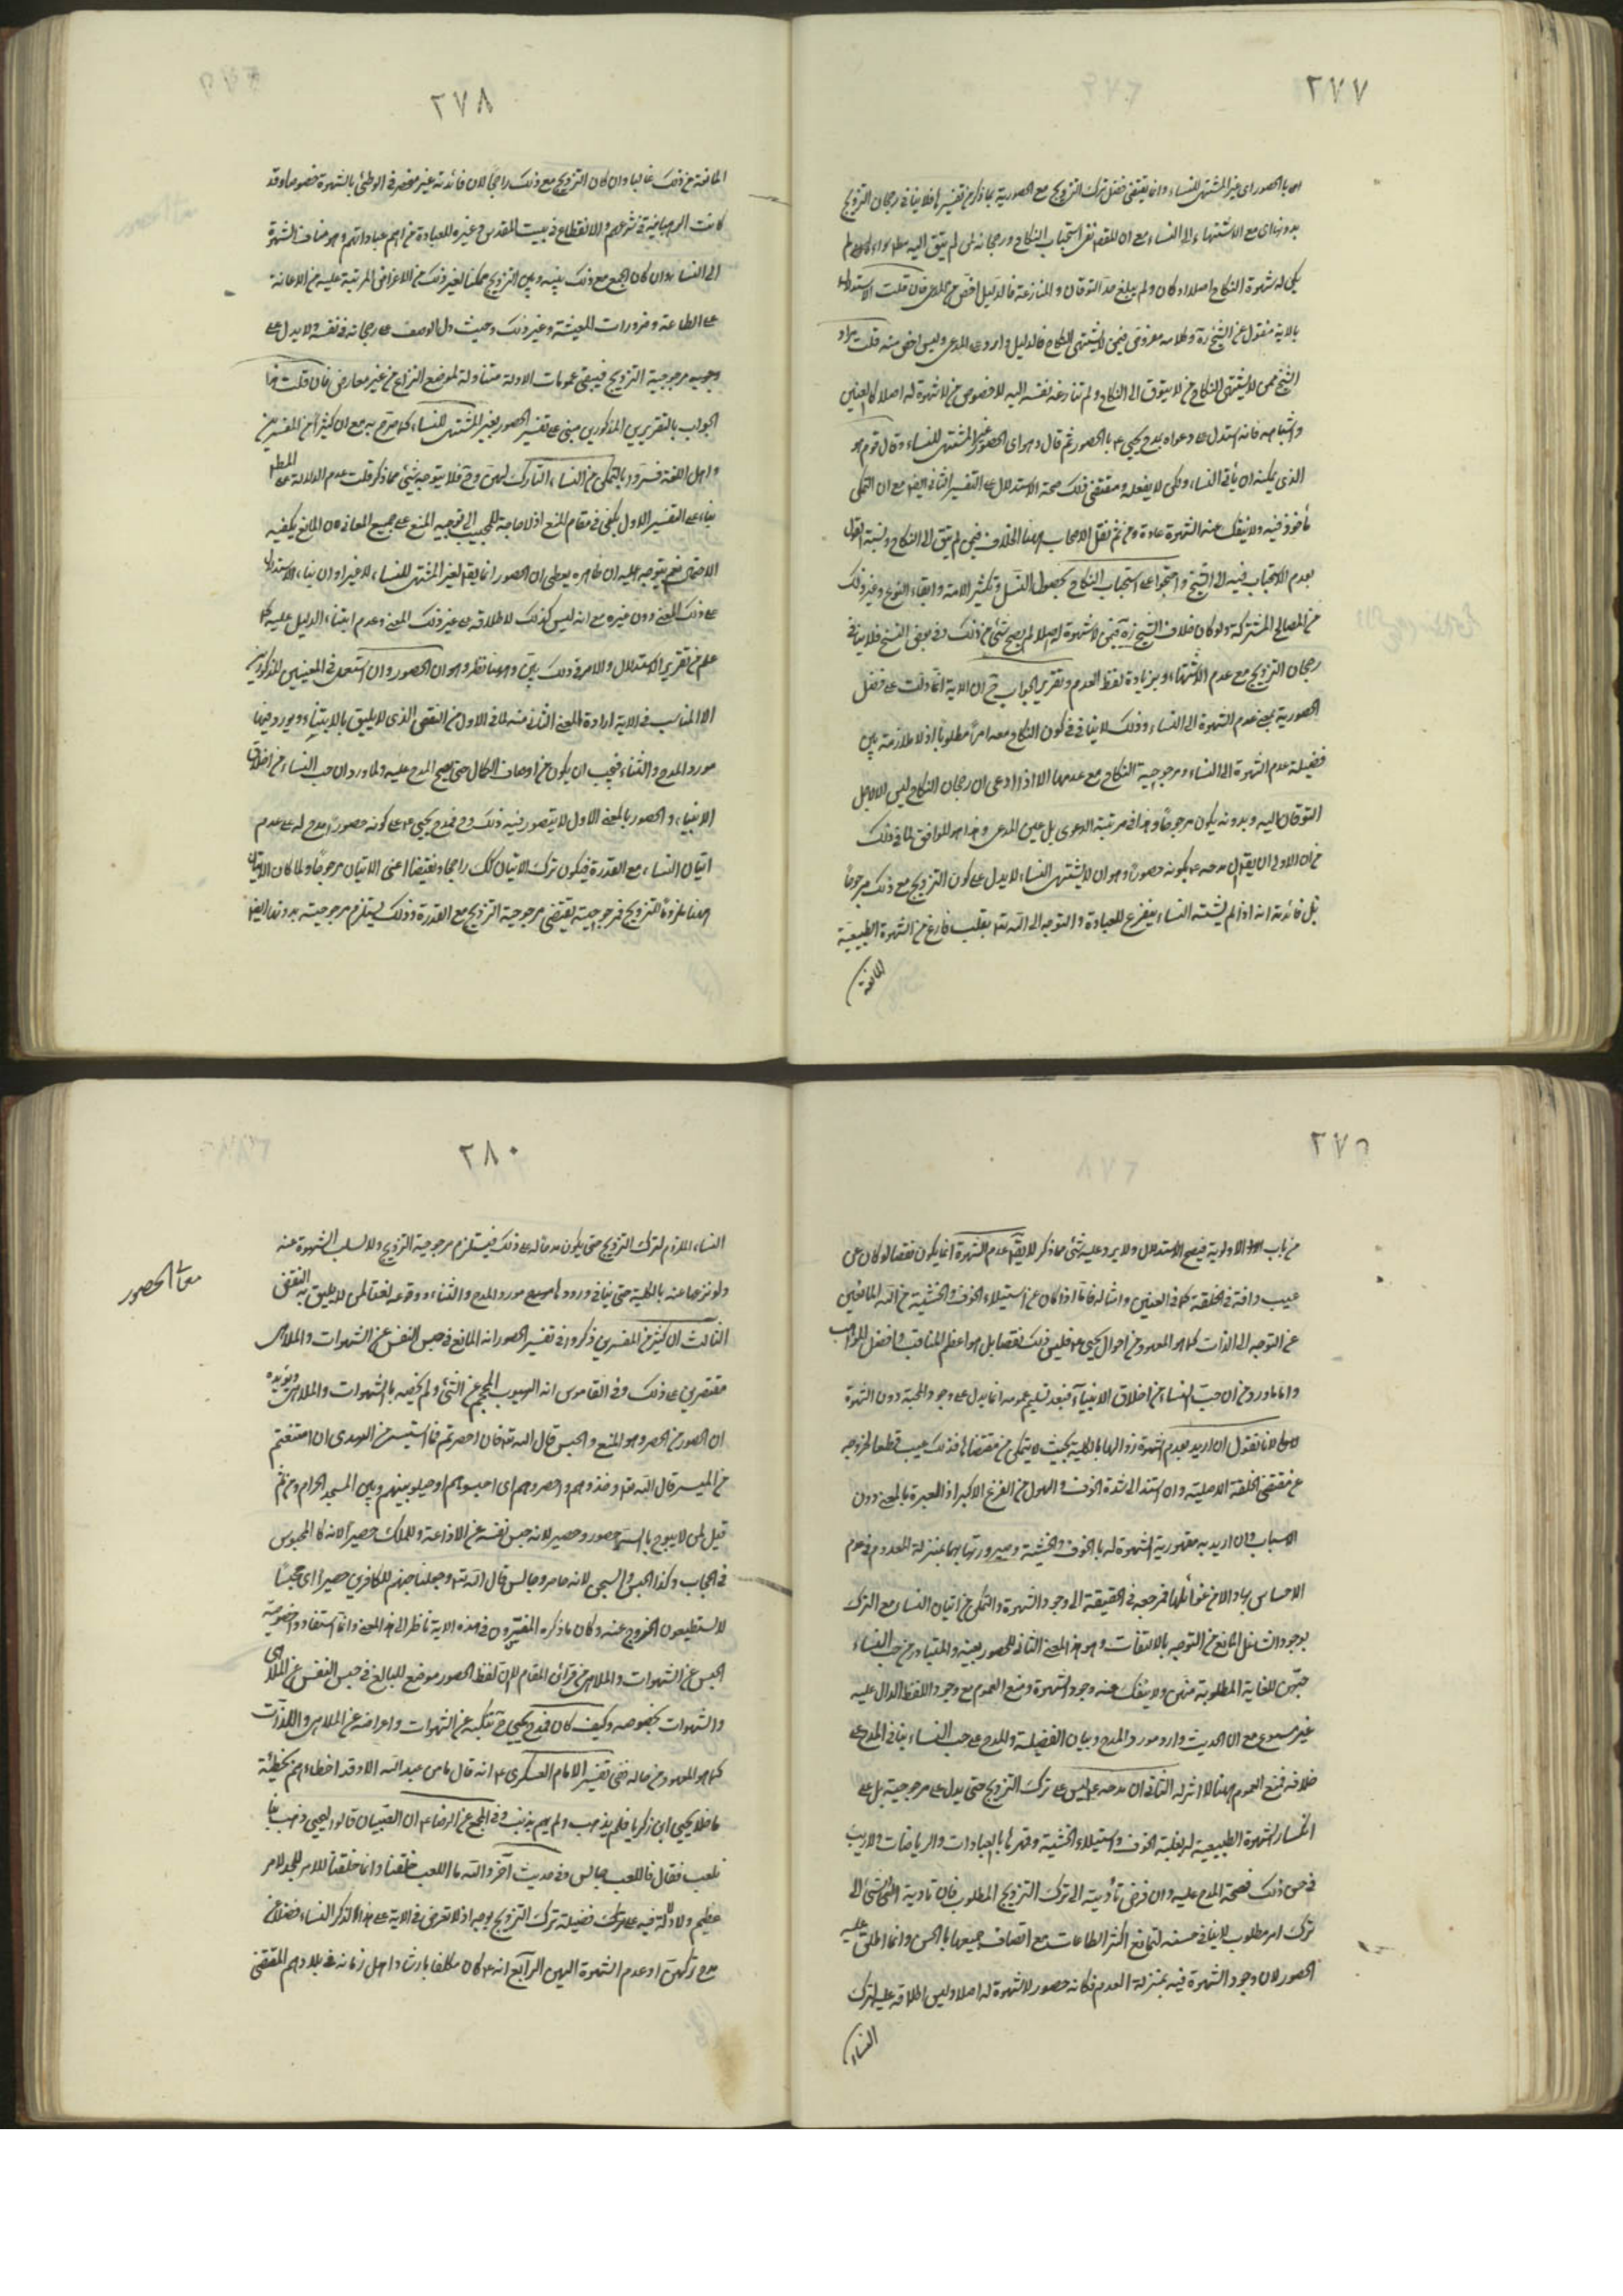 ٢٧٧
اى بالحصور اى غير المشتهى للنساء وانما يقتضى فضل ترك التزويج مع الحصورية بما ذكر فى تفسيرها فلا ينافى رجحان التزويج
بدونها اى مع الاشتهاء الى النساء مع ان استحباب النكاح ورجحانه لمن لم يتق اليه
يكن له شهوة النكاح اصلا او كان ولم يبلغ حد التوقان والمنازعة فالدليل اخص من المدعى فان قلت الاستدلال
بالاية منقول عن الشيخ ره وكلامه مفروض فيمن لا يشتهى النكاح فالدليل وارد على المدعى وليس اخص منه قلت مراد
الشيخ ممن لا يشتهى النكاح من لا يتوق الى النكاح ولم تنازعه نفسه اليه لا خصوص من لا شهوة له اصلا كالعنين
واشباهه فانه استدل على دعواه بمدح يحيى ع بالحصور ثم قال وهو اى الحصور غير المشتهى للنساء وقال قوم هو
الذى يمكنه ان يأتى النساء ولكن لا يفعله ومقتضى ذلك صحة الاستدلال على التفسير الثانى ايضا مع ان التمكن
مأخوذ فيه ولا ينفك عنه الشهوة عادة ومن ثم نقل الاصحاب ههنا الخلاف فيمن لم يتق الى النكاح ونسبة القول
بعدم الاستحباب فيه الى الشيخ واحتجوا على استحباب النكاح بحصول النسل وتكثير الامة وابقاء النوع وغير ذلك
من المصالح المشتركة ولو كان خلاف الشيخ ره فيمن لا شهوة له اصلا لم يصح شئ من ذلك وفى بعض النسخ فلا ينافى
رجحان التزويج مع عدم الاشتهاء بزيادة لفظ العدم وتقرير الجواب ح ان الاية انما دلت على فضل
الحصورية بمعنى عدم الشهوة الى النساء وذلك لا ينافى كون النكاح معه امرا مطلوبا اذ لا ملازمة بين
فضيلة عدم الشهوة الى النساء ومرجوحية النكاح مع عدمها الا اذا ادعى ان رجحان النكاح ليس الا لاجل
التوقان اليه وبدونه يكون مرجوحا وهذا فى مرتبة الدعوى بل عين المدعى وهذا هو الموافق لما فى ذلك
من ان الاولى ان يقول مدحه ع بكونه حصورا وهو ان لا يشتهى النساء لا يدل على كون التزويج مع ذلك مرجوحا
بل فائدته انه اذا لم يشته النساء يتفرغ للعبادة والتوجه الى الله تعالى بقلب فارغ من الشهوة الطبيعية
المانعة
٢٧٨
المانعة من ذلك غالبا وان كان التزويج مع ذلك راجحا لان فائدته غير منحصر فى الوطئ بالشهوة خصوصا وقد
كانت الرهبانية فى شرعهم والانقطاع فى بيت المقدس وغيره للعبادة من اهم عباداتهم وهو مناف للشهوة
الى النساء وان كان الجمع مع ذلك بينه وبين التزويج ممكنا لغير ذلك من الاغراض المرتبة عليه من الاعانة
على الطاعة وضرورات المعيشة وغير ذلك وحيث دل الوصف على رجحانه فى نفسه ولا يدل على
وجوب مرجوحية التزويج فيبقى عمومات الادلة متناولة لموضع النزاع من غير معارض فان قلت هذا
الجواب بالتقريرين المذكورين مبنى على تفسير الحصور بغير المشتهى للنساء كما صرح به مع ان كثيرا من المفسرين
واهل اللغة فسروه بالتمكن من النساء التارك لهن وح فلا يتوجه شئ مما ذكر قلت عدم الدلالة على المط
بناء على التفسير الاول يكفى فى مقام المنع اذ لا حاجة للمجيب الى توجيه المنع على جميع المعانى لان المانع يكفيه
الاحتمال نعم يتوجه عليه ان ظاهره يعطى ان الحصور انما يقال لغير المشتهى للنساء لا غير او ان بناء الاستدلال
على ذلك المعنى دون غيره مع انه ليس كذلك لاطلاقه على غير ذلك المعنى وعدم ابتناء الدليل عليه كما
علم من تقرير الاستدلال والامر فى ذلك بين وههنا نظر وهو ان الحصور وان استعمل فى المعنيين المذكورين
الا المناسب فى الاية ارادة المعنى الثانى منه لما فى الاول من النقص الذى لا يليق بالابتناء وورودها
مورد المدح والثناء فيجب ان يكون من اوصاف الكمال حتى يصح المدح عليه ولما ورد ان حب النساء من اخلاق
الانبياء والحصور بالمعنى الاول لا يتصور فيه ذلك وح فمدح يحيى ع على كونه حصورا مدح له على عدم
اتيان النساء مع القدرة فيكون ترك الاتيان كك راجحا ونقيضه اعنى الاتيان مرجوحا ولما كان الاتيان
ههنا ملزوما للتزويج فمرجوحيته يقتضى مرجوحية التزويج مع القدرة وذلك يستلزم مرجوحيته بدونها ايضا
٢٧٩
من باب الاولوية فيصح الاستدلال ولا يرد عليه شئ مما ذكر لا يقال عدم الشهوة انما يكون نقصا لو كان من
عيب وافة فى الخلقة كما فى العنين وامثاله فاما اذا كان عن استيلاء الخوف والخشية من الله المانعين
عن التوجه الى الذات كما هو المعهود من احوال يحيى ع فليس ذلك نقصا بل هو اعظم المناقب وافضل المواهب
واما ما ورد من ان حب النساء من اخلاق الانبياء فبعد تسليم عمومه انما يدل على وجود المحبة دون الشهوة
لانا نقول ان اريد بعدم الشهوة زوالها بالكلية بحيث لا يتمكن من مقتضاها فذلك عيب قطعا لخروجه
عن مقتضى الخلقة الاصلية وان استند الى شدة الخوف والهول من الفزع الاكبر اذ العبرة بالمعنى دون
الاسباب وان اريد به مقهورية الشهوة له بالخوف والخشية وصيرورتها بهما بمنزلة المعدوم فى عدم
الاحساس بها والامن غوائلها فمرجعه فى الحقيقة الى وجود الشهوة والتمكن من اتيان النساء مع الترك
لوجود الشاغل المانع من التوجه بالالتفات وهو هذا المعنى الثانى للحصور بعينه والمتبادر من حب النساء
حبهن للغاية المطلوبة منهن ولا ينفك عنه وجود الشهوة ومنع العموم مع وجود اللفظ الدال عليه
غير مسموع مع ان الحديث وارد مورد المدح وبيان الفضيلة والمدح على حب النساء ينافى المدح على
خلافه فمنع العموم ههنا لا اثر له الثانى ان مدحه ع ليس على ترك التزويج حتى يدل على مرجوحيته بل على
انكسار الشهوة الطبيعية له بغلبة الخوف واستيلاء الخشية وقهرها بالعبادات والرياضات ولا ريب
فى حسن ذلك فصحة المدح عليه وان فرض تأديته الى ترك التزويج المطلوب فان تادية الشئ الى
ترك امر مطلوب لا ينافى حسنه لتمانع اكثر الطاعات مع اتصاف جميعها بالحسن وانما اطلق عليه
الحصور لان وجود الشهوة فيه بمنزلة العدم فكانه حصور لا شهوة له اصلا وليس اطلاقه عليه لترك
النساء
٢٨٠
النساء اللازم لترك التزويج حتى يكون مدحا له على ذلك فيستلزم مرجوحية التزويج ولا لسلب الشهوة عنه
ولو نزعها عنه بالكلية حتى ينافى ورودها مورد المدح والثناء ووقوعه لمن لا يليق به النقص
الثالث ان كثيرا من المفسرين ذكروا فى تفسير الحصور انه المانع فى حبس النفس عن الشهوات والملاهى
مقتصرين على ذلك وفى القاموس انه الهيوب المحجم عن الشئ ولم يخصه بالشهوات والملاهى ويؤيده
ان الحصور من الحصر وهو المنع والحبس قال الله تعالى فان احصرتم فما استيسر من الهدى ان امتنعتم
من المسير قال الله تعالى وخذوهم واحصروهم اى احبسوهم او حيلوا بينهم وبين المسجد الحرام ومن ثم
قيل لمن لا يبوح بالسر حصور وحصير لانه حبس نفسه عن الاذاعة وللملك حصيرا لانه كالمحبوس
فى الحجاب وكذا الحبس والسجن لانه حاصر وحابس قال الله تعالى وجعلنا جهنم للكافرين حصيرا اى محبسا
لا يستطيعون الخروج عنه وكان ما ذكره المفسرون فى هذه الاية ناظر الى هذا المعنى وانما استفادوا خصوصية
الحبس عن الشهوات والملاهى من قرائن المقام لا ان لفظ الحصور موضوع للبالغ فى حبس النفس عن الملاهى
والشهوات بخصوصه وكيف كان فمدح يحيى ح بتنكبه عن الشهوات واعراضه عن الملاهى واللذات
كما هو المعهود من حاله ففى تفسير الامام العسكرى ع انه قال ما من عبد لله الا وقد اخطأ او هم بخطيئة
ما خلا يحيى ابن زكريا فلم يذنب ولم يهم بذنب وفى المجمع عن الرضا ع ان الصبيان قالوا ليحيى اذهب بنا
نلعب فقال ما للعب خلقنا وفى حديث آخر والله ما للعب خلقنا وانما خلقنا للامر للجد لامر
عظيم ولا دلالة فيه على ترك فضيلة ترك التزويج بوجه اذ لا تعرض فى الاية على هذا لذكر النساء فضلا عن
مدح تركهن او عدم الشهوة اليهن الرابع انه ع كان مكلفا بارشاد اهل زمانه فى بلادهم المقتضى
معانى الحصور